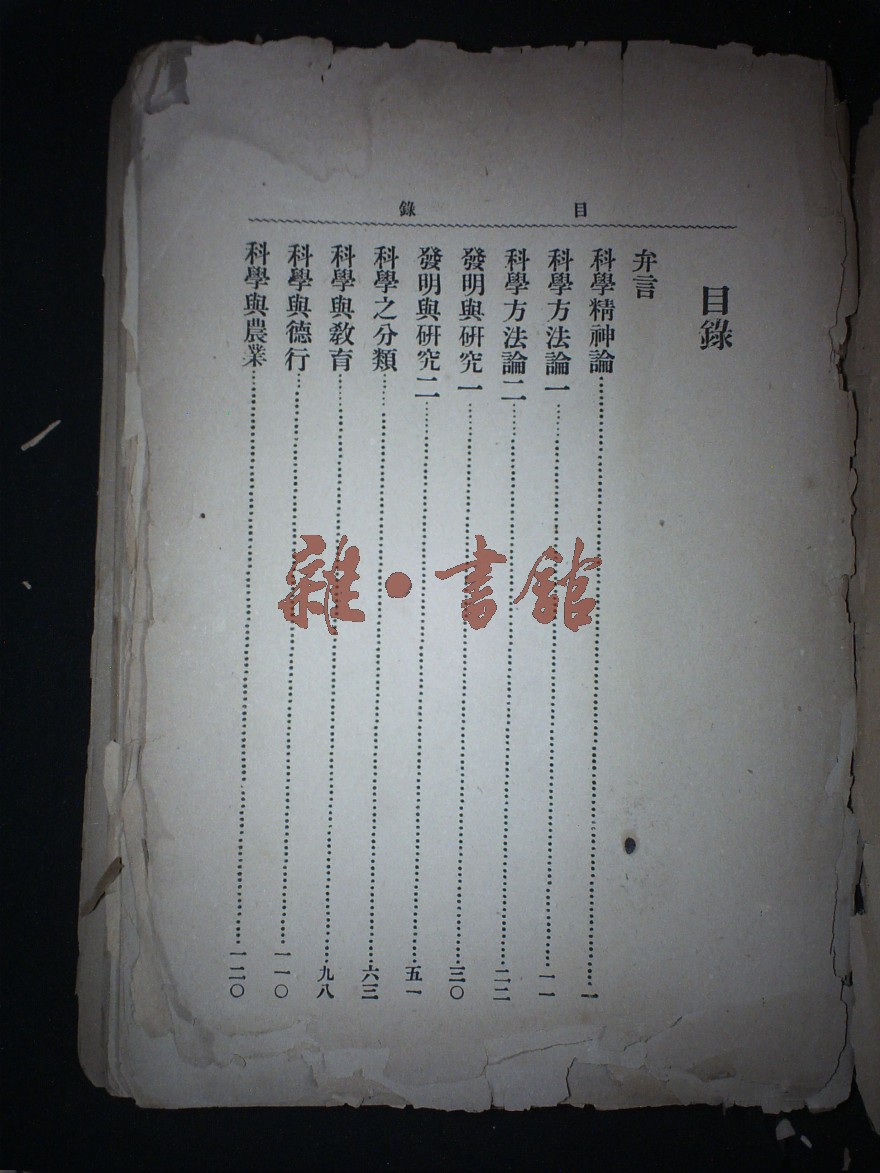 目錄
目錄
弁言
科學精神論……一
科學方法論一……一一
科學方法論二……二二
發明與研究一……三〇
發明與研究二……五一
科學之分類……六三
科學與教育……九八
科學與德行……一一〇
科學與農業……一二〇
雜·書館